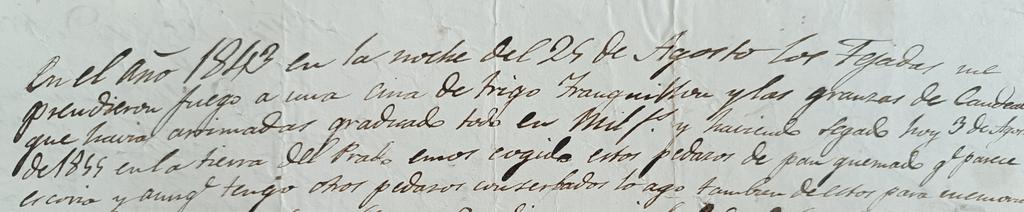 En el año 1843 en la noche del 25 de Agosto los Tejadas me
prendieron fuego a una cina de trigo Tranquillon y las granzas de Candeal
que havia arrimadas graduado todo en Mil f.s y haviendo segado hoy 3 de Agos
de 1855 en la tierra del Prado emos cogido estos pedazos de pan quemado q.e parece
escoria y aunq.e tengo otros pedazos conserbados lo ago tambien de estos para memoria